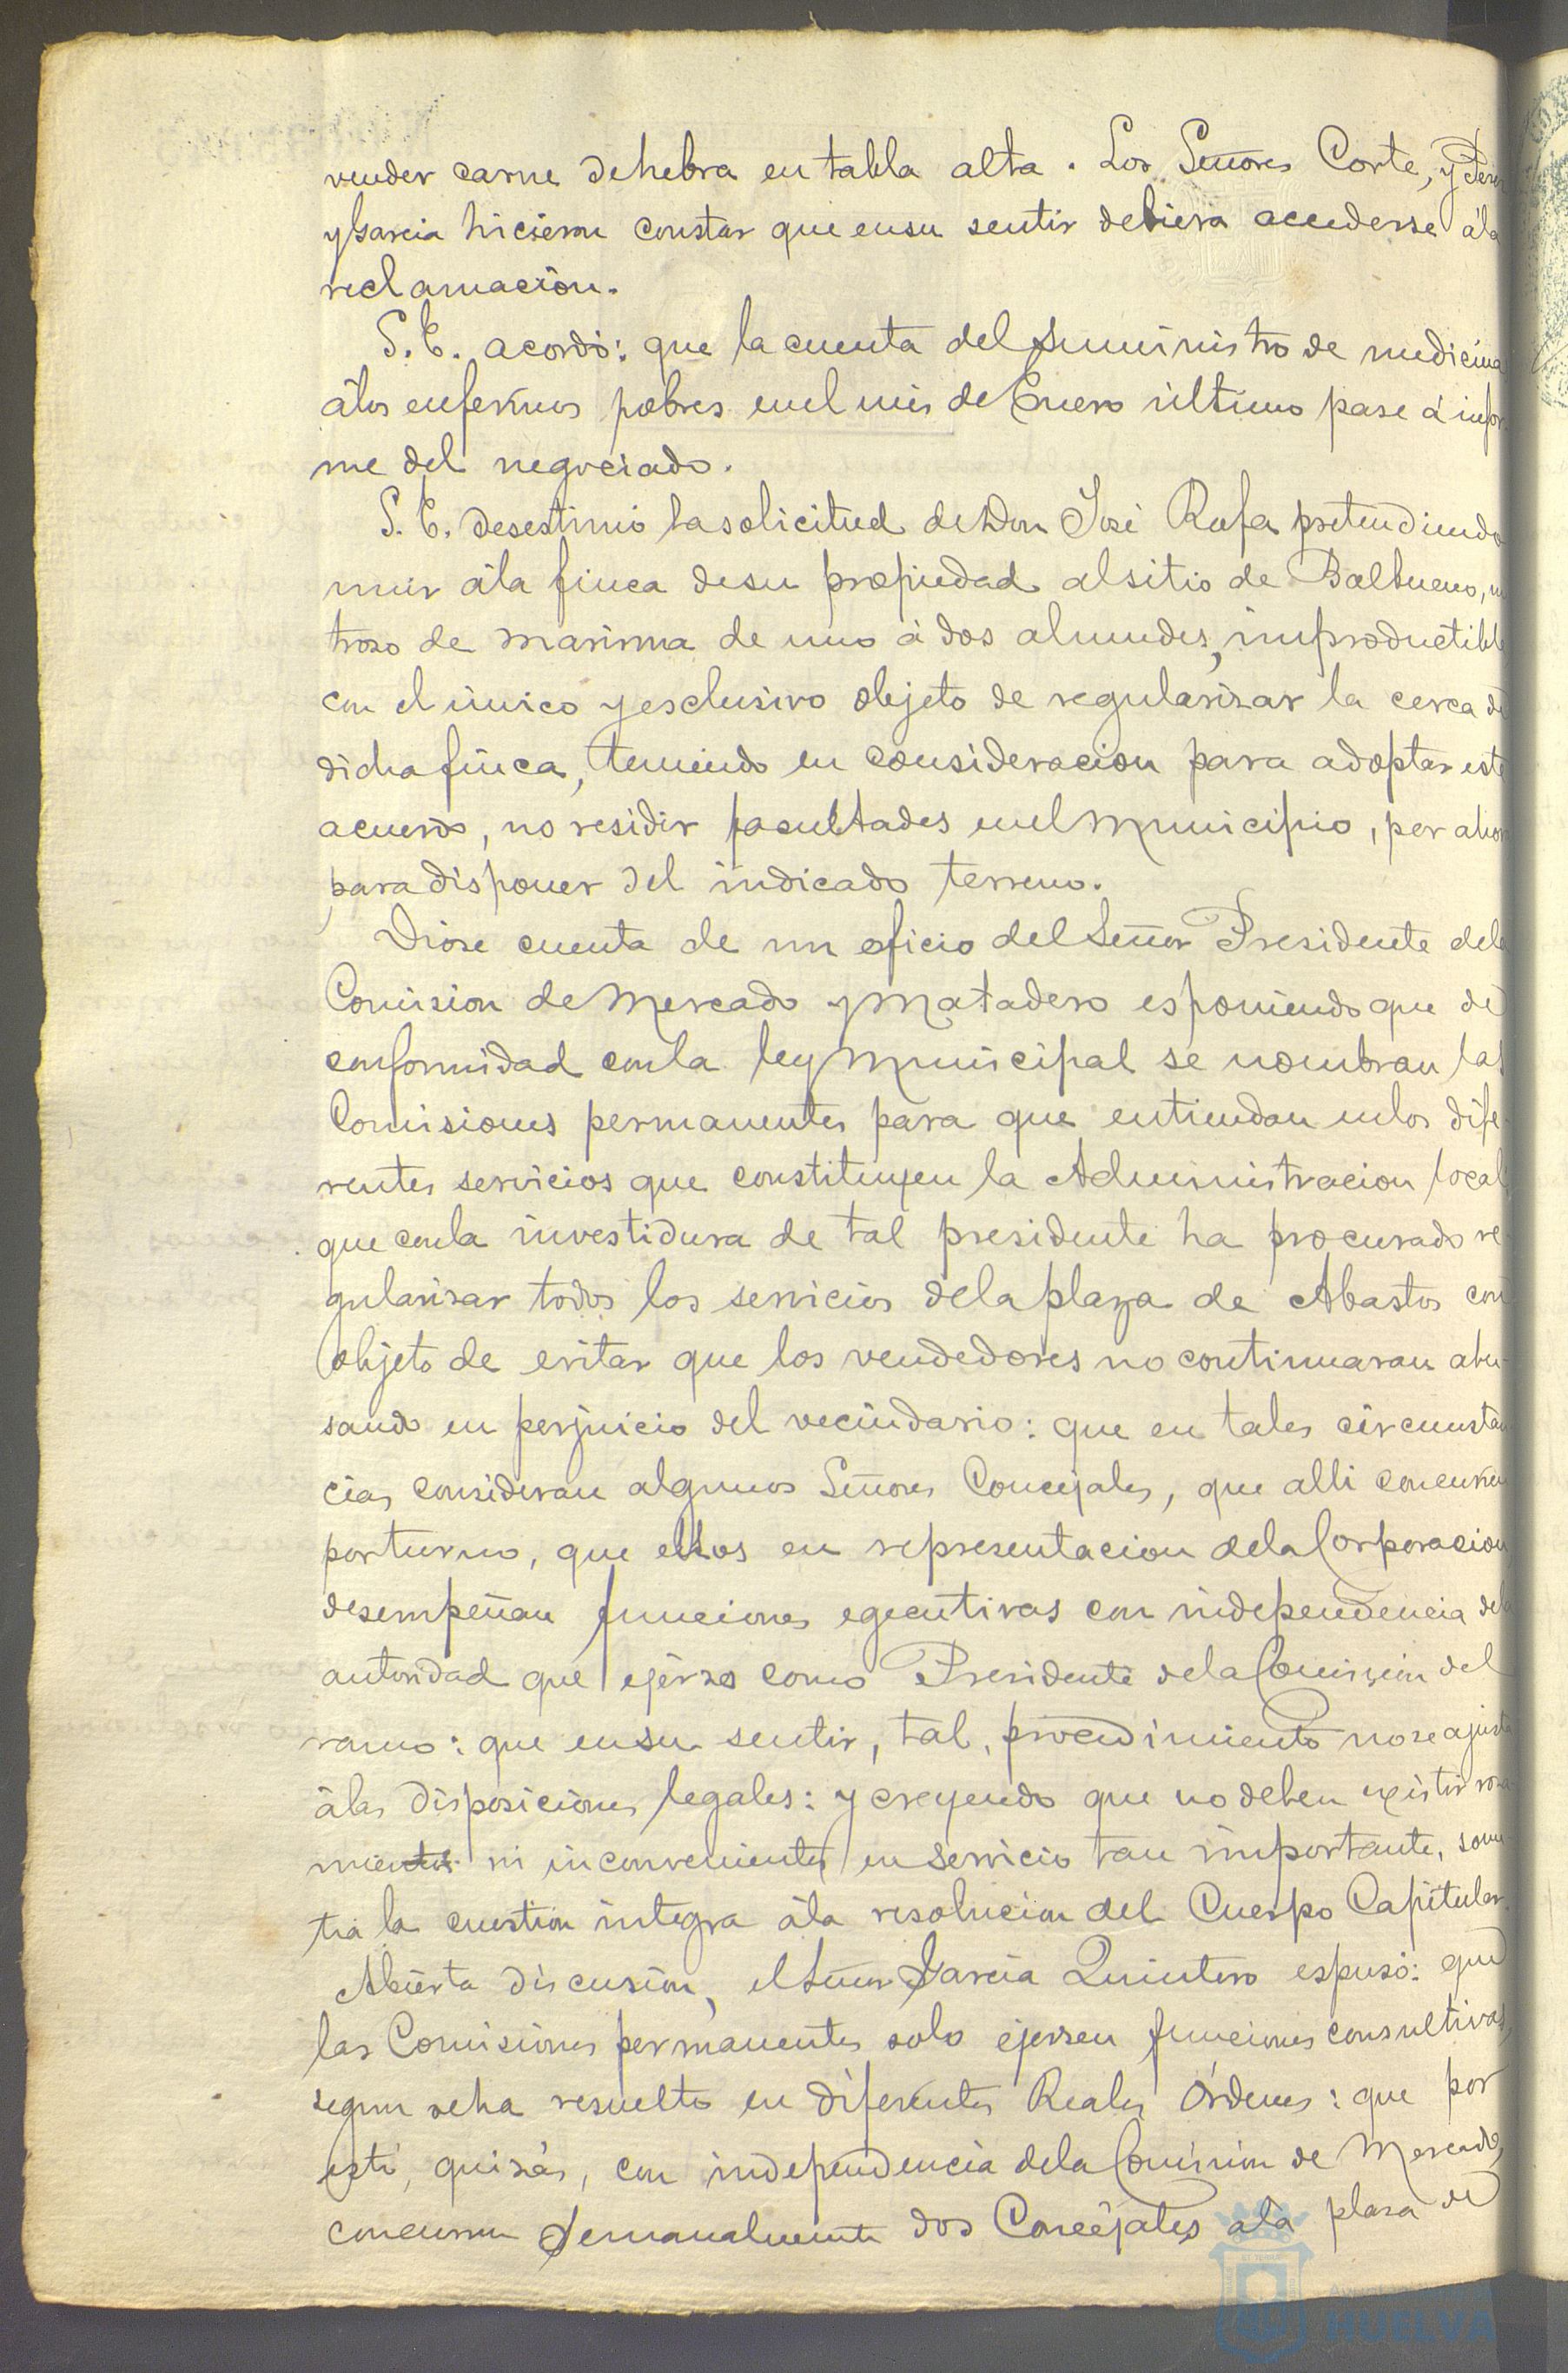 vender carne de hebra en tabla alta. Los Señores Corte, y Perez
y Garcia hicieron constar que en su sentir debiera accederse á la
reclamacion.
S. E. acordó: que la cuenta del suministro de medicina
á los enfermos pobres en el mes de Enero último pase á infor
me del negociado.
S. E. desestimó la solicitud de Don José Rufa pretendiendo
unir á la finca de su propiedad al sitio de Balbueno, un
troso de marisma de uno á dos almudes, improductible
con el único y esclusivo objeto de regularisar la cerca de
dicha finca, teniendo en consideracion para adoptar este
acuerdo, no residir facultades en el Municipio, por ahora
para disponer del indicado terreno.
Diose cuenta de un oficio del Señor Presidente de la
Comision de Mercado y Matadero esponiendo que de
conformidad con la ley Municipal se nombran las
Comisiones permanentes para que entiendan en los dife
rentes servicios que constituyen la Administracion local
que con la investidura de tal presidente ha procurado re
gularisar todos los servicios de la plaza de Abastos con
objeto de evitar que los vendedores no continuaran abu-
sando en perjuicio del vecindario: que en tales circunstan
cias consideran algunos Señores Concejales, que alli concurren
por turno, que ellos en representacion de la Corporacion
desempeñan funciones egecutivas con independencia de la
autoridad que ejerse como Presidente de la Comision del
ramo: que en su sentir, tal, procedimiento no se ajusta
á las disposiciones legales: y creyendo que no deben existir rosa
mientos ni inconvenientes en servicio tan importante, some
tia la cuestion integra á la resolucion del Cuerpo Capitular.
Abierta discusion, el Señor Garcia Quintero espuso: que
las Comisiones permanentes solo ejersen funciones consultivas,
segun se ha resuelto en diferentes Reales Órdenes: que por
esto, quisás, con independencia de la Comision de Mercado,
concurren semanalmente dos Concejales á la plasa de
HUELVA